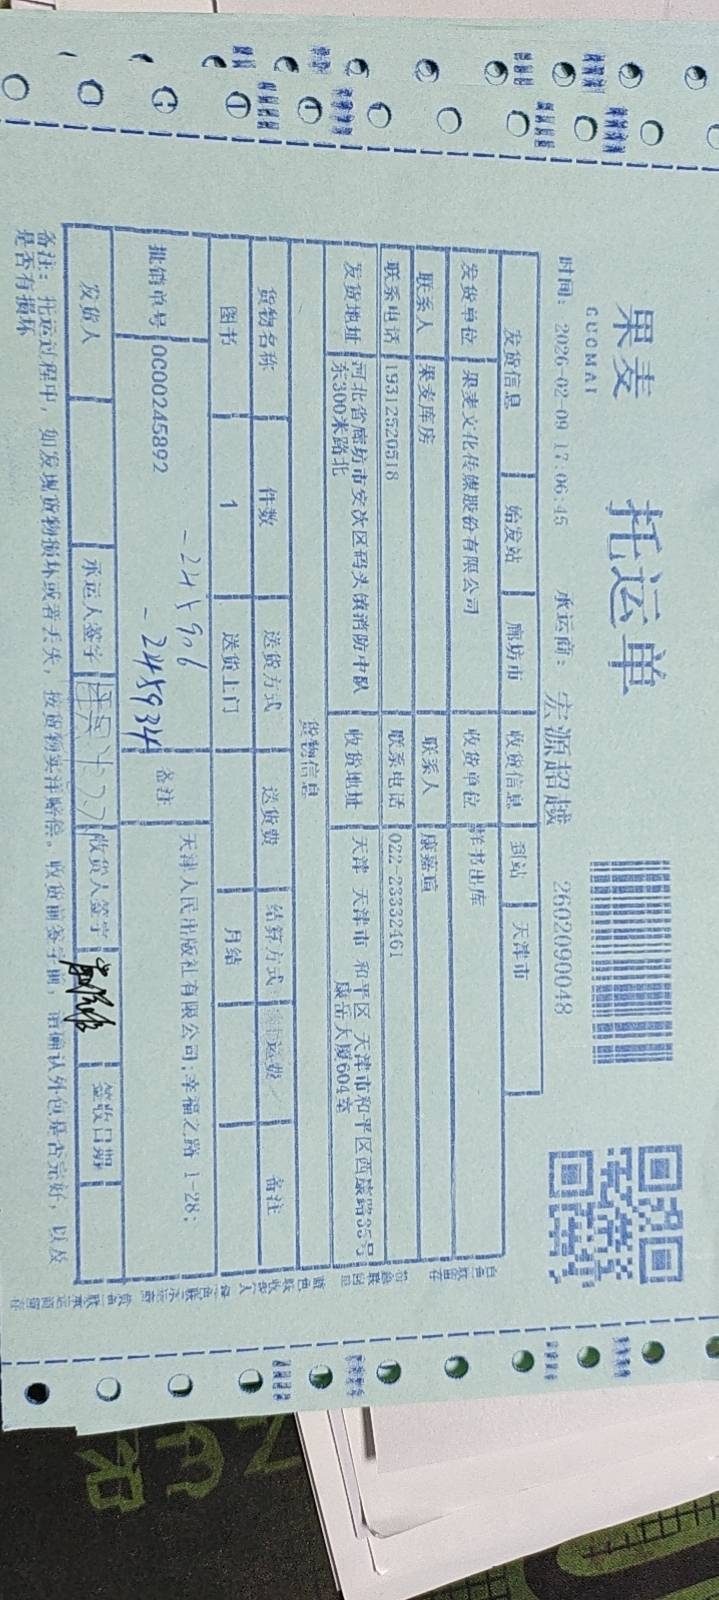 果麦
GUOMAI
托运单
时间: 2026-02-09 17:06:45 承运商: 宏源超越 2602090048
发货信息 始发站 廊坊市 收货信息 到站 天津市
发货单位 果麦文化传媒股份有限公司 收货单位 样书出库
联系人 果麦库房 联系人 康嘉瑄
联系电话 19312520518 联系电话 022-23332461
发货地址 河北省廊坊市安次区码头镇消防中队东300米路北 收货地址 天津 天津市 和平区 天津市和平区西康路35号康岳大厦604室
货物信息
货物名称 件数 送货方式 送货费 结算方式 运费 备注
图书 1 送货上门 月结
批销单号 0C00245892 备注 天津人民出版社有限公司;幸福之路 1-28;
-245906
-245934
发货人 承运人签字 收货人签字 签收日期
备注: 托运过程中, 如发现货物损坏或者丢失, 按货物实洋赔偿。收货前签字前, 请确认外包是否完好, 以及
是否有损坏